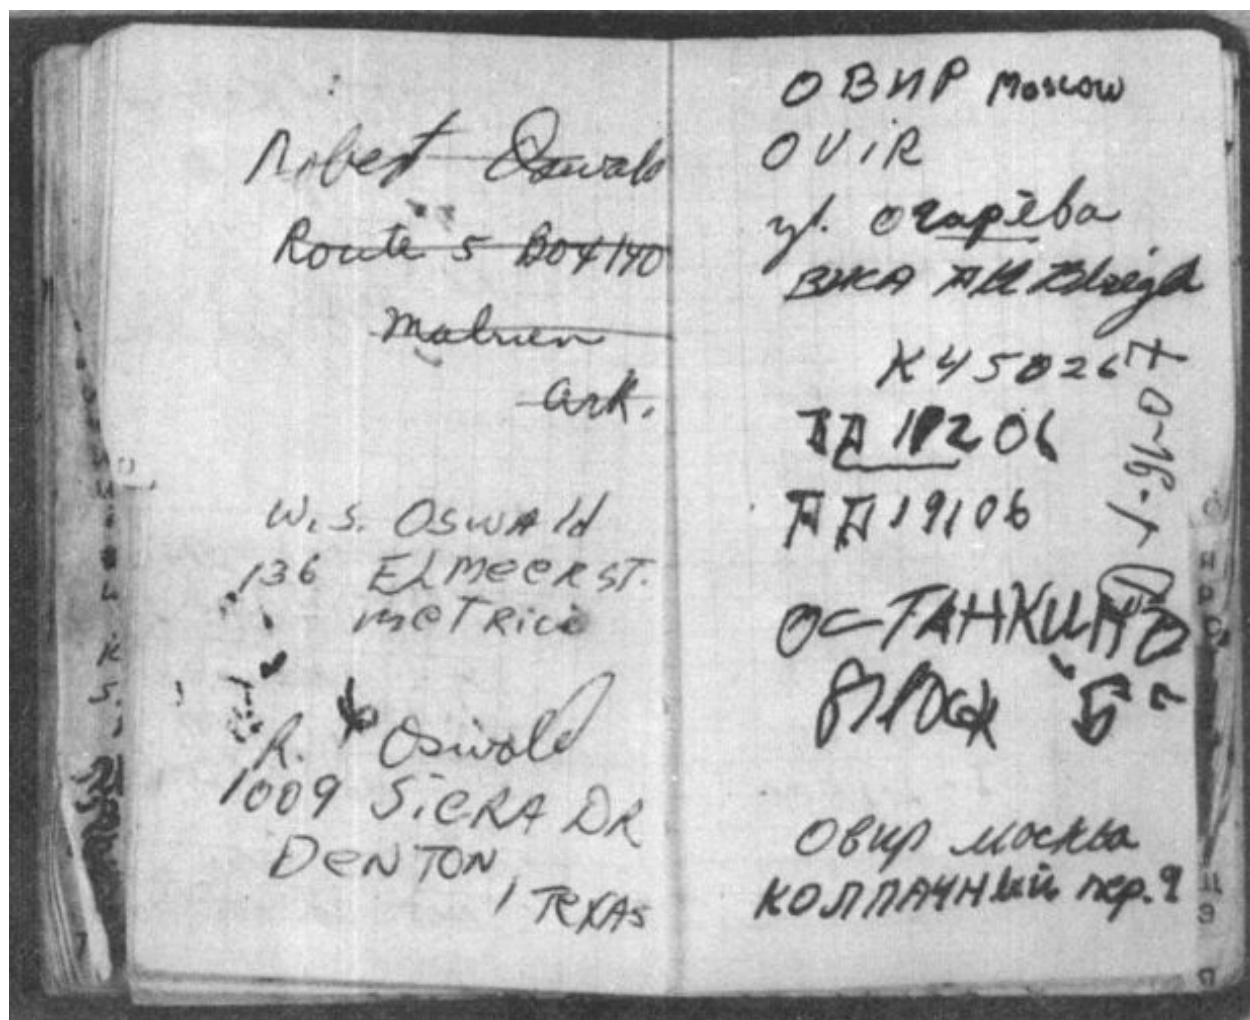 Robert Oswald
Route 5 Box 140
Malvern
Ark.
W.S. OSWALd
136 ELmeer ST.
meTRice
R. Oswald
1009 SiERA DR
DeNTON,
TEXAS
ОВИР Moscow
OViR
ул. Огарёва
K 4 50267
ДД 19106
ОСТАНКИНО
5
Овир москва
КОЛПАЧНый пер. 9